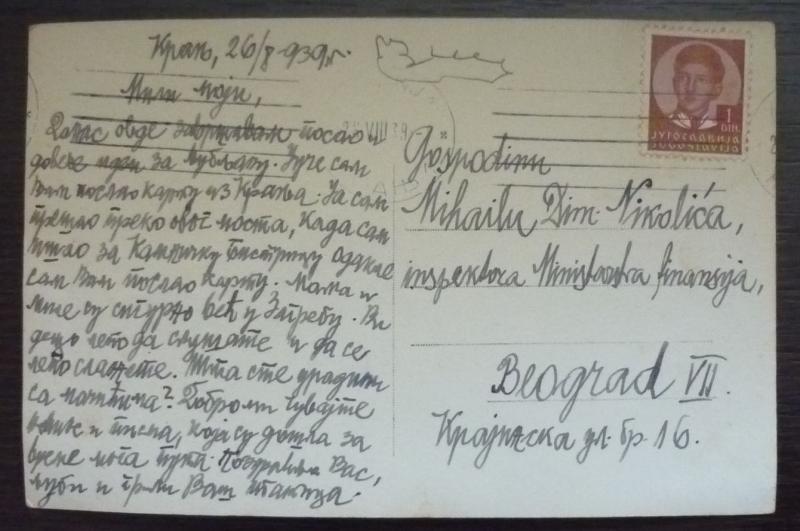 Крањ, 26/8 939г.
Мили моји,
Данас овде завршавам посао и
довече идем за Љубљану. Јуче сам
Вам послао карту из Крања. Ја сам
прешао преко овог моста, када сам
ишао за Камничку Бистрицу одакле
сам Вам послао карту. Мама и
Миле су сигурно већ у Загребу. Ви
децо лепо да слушате и да се
лепо слажете. Шта сте урадили
са мачићима? Добро ми чувајте
и писма, која су дошла за
време мога пута. Поздравља Вас,
љуби и грли Ваш татица.
VIII 39
1
DIN.
ЈУГОСЛАВИЈА
JUGOSLAVIJA
Gospodinu
Mihailu Dim. Nikolića,
inspektora Ministarstva finansija,
Beograd VII.
Крајинска ул. бр. 16.